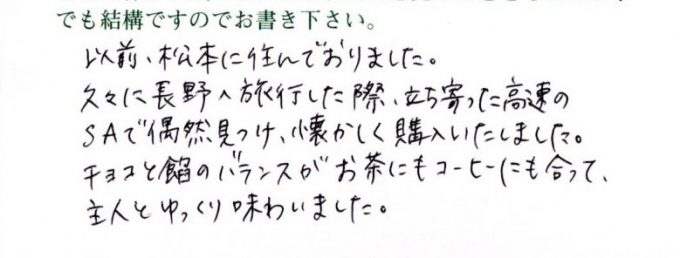 でも結構ですのでお書き下さい。
以前、松本に住んでおりました。
久々に長野へ旅行した際、立ち寄った高速の
SAで偶然見つけ、懐かしく購入いたしました。
チョコと餡のバランスがお茶にもコーヒーにも合って、
主人とゆっくり味わいました。